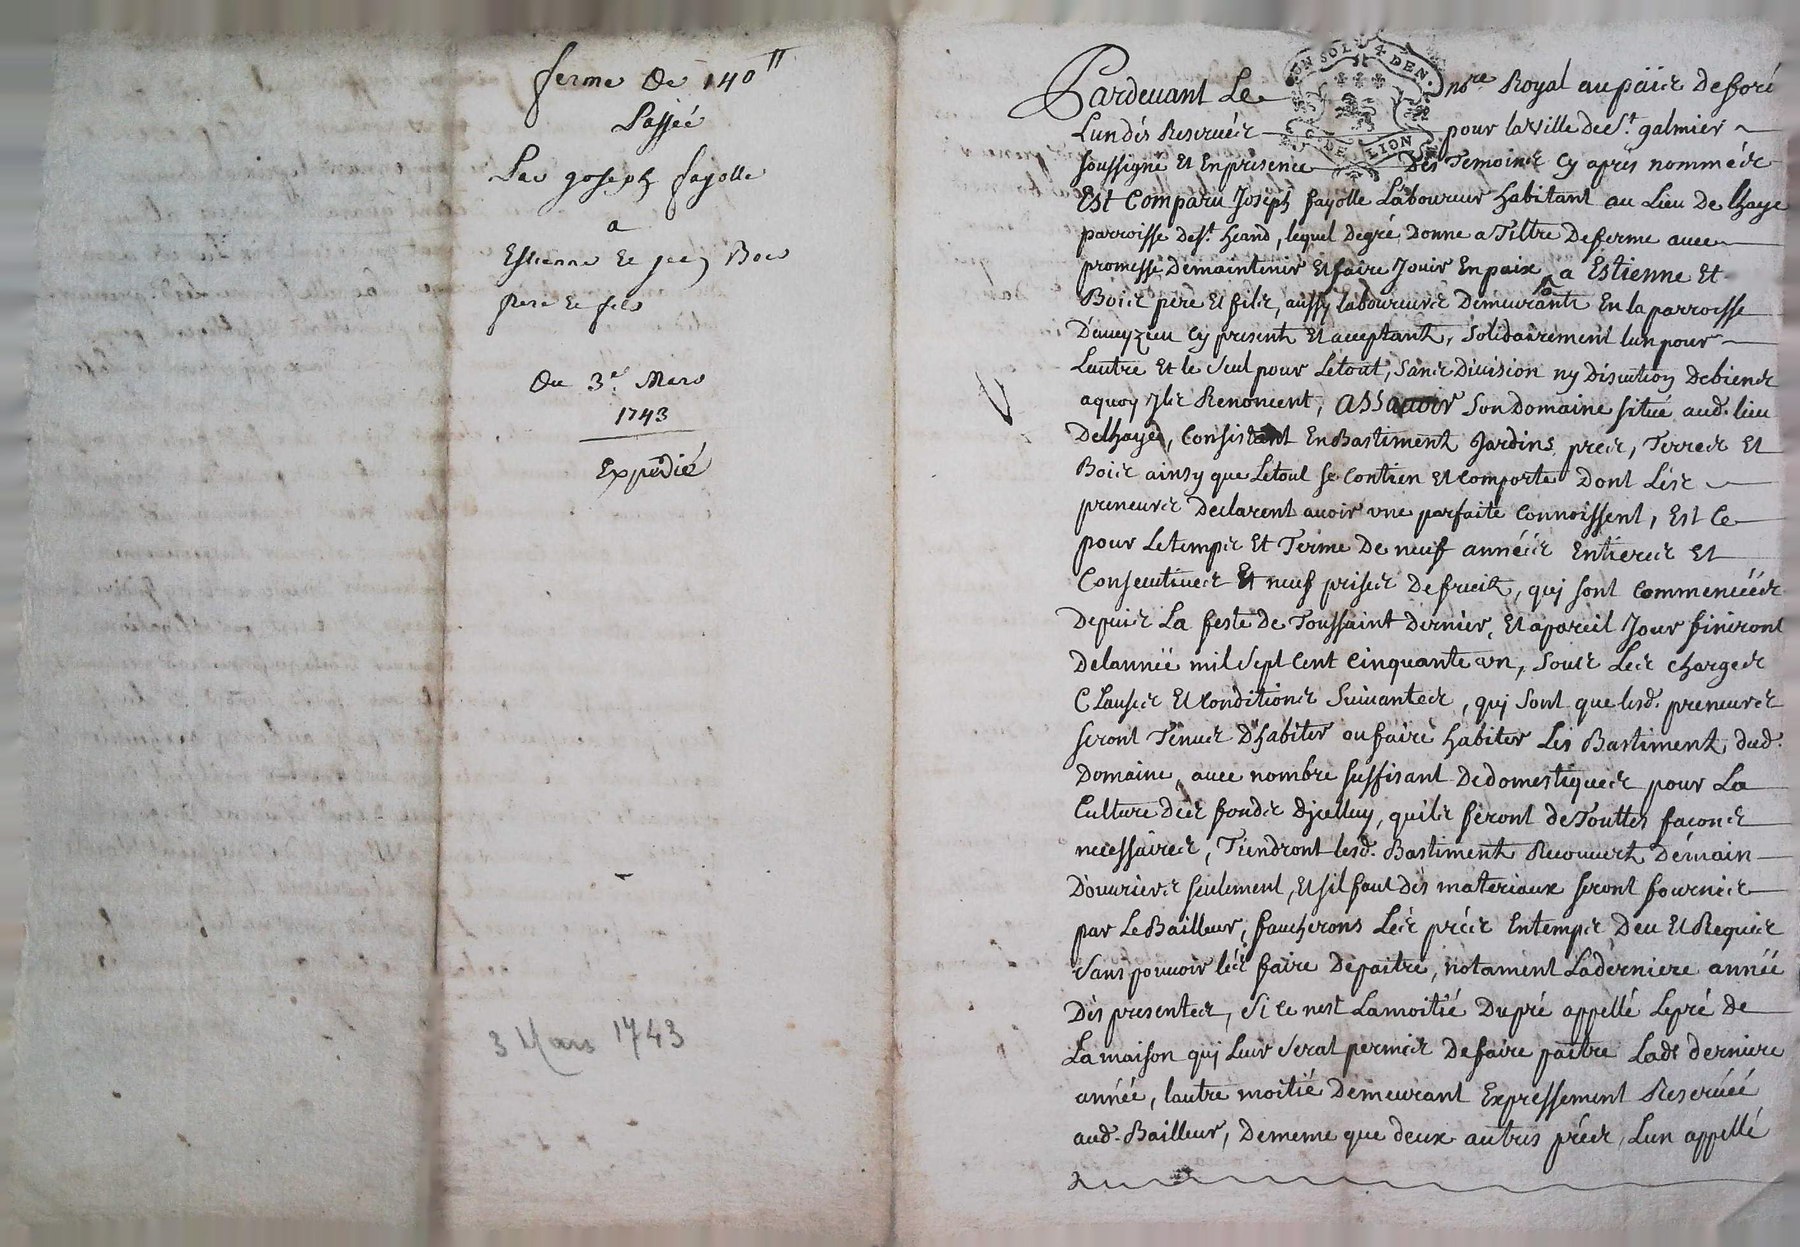 ferme De 140 ₶
Passée
Par Joseph fayolle
a
Estienne Et Bois
Pere Et fils
Du 3e. Mars
1743
Expedié
3 Mars 1743
UN SOL 4 DEN.
G. DE LION
Pardevant Le nre Royal au païs de foré
Lun des Reservés pour la ville de St. galmier
soussigné Et En presence Des Temoins Cy apres nommés
Est Comparu Joseph fayolle Laboureur habitant au Lieu De lhaye
parroisse de St. heand, lequel de gré Donne a Tiltre De ferme avec
promesse De maintenir Et faire Jouir En paix, a Estienne Et
Bois pere Et fils, aussy laboureurs Demeurants En la parroisse
D'aveyzieu Cy presents Et acceptants, Solidairement lun pour
Lautre Et le Seul pour Le tout, Sans Division ny Discution De biens
a quoy Ils Renoncent, ASSavoir Son Domaine Situé aud. lieu
De lhaye, Consistant En Bastiments Jardins, prés, Terres Et
Bois ainsy que Le tout Se Contien Et Comporte Dont Les
preneurs Declarent avoir une parfaite Connoissent, Est Ce
pour Le temps Et Terme De neuf années Entieres Et
Consecutives Et neuf prises De fruits, quj Sont Commencées
Depuis La feste De Toussaint Dernier, Et a pareil Jour finiront
De lannée mil Sept Cent Cinquante un, Sous Les charges
Clauses Et Conditions Suivantes, quj Sont que lesd. preneurs
Seront Tenus D'habiter ou faire habiter Les Bastiments dud.
Domaine, avec nombre Suffisant De domestiques pour La
Culture Des fonds Djcelluy, quils feront de Touttes façons
necessaires, Tiendront lesd. Bastiments Recouverts De main
D'ouvriers Seulement, Et Sil faut Des materiaux Seront fournis
par Le Bailleur, faucherons Les prés En temps Deu Et Requis
Sans pouvoir les faire Depaitre, notament La derniere année
Des presentes, Si Ce nest La moitié Du pré appellé Le pré de
La maison quj Leur Serat permis De faire paitre Lade derniere
année, lautre moitié Demeurant Expressement Reservéé
aud. Bailleur, De meme que deux autres prés, Lun appellé